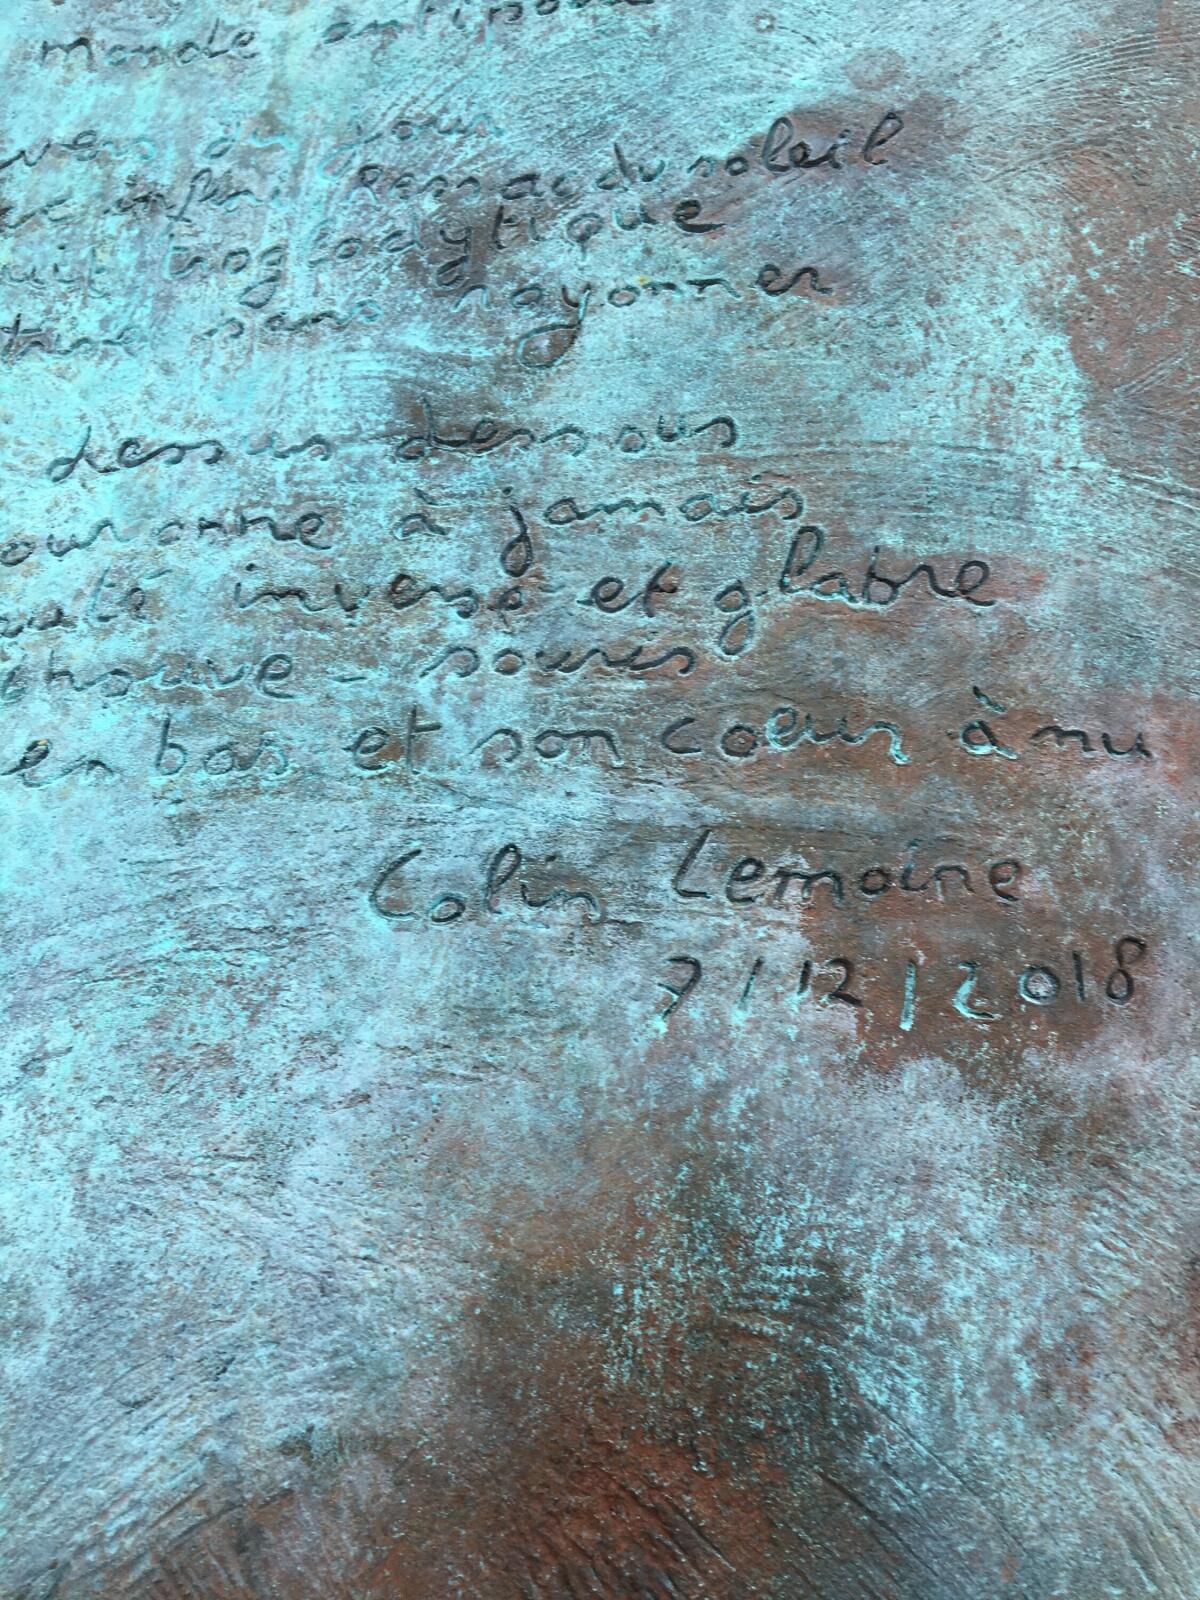 monde
vers du jour
infini Ressac du soleil
troglodytique
sans rayonner
dessus dessous
ouronne à jamais
auté inverse et glabre
chauve-souris
en bas et son coeur à nu
Colin Lemoine
7/12/2018